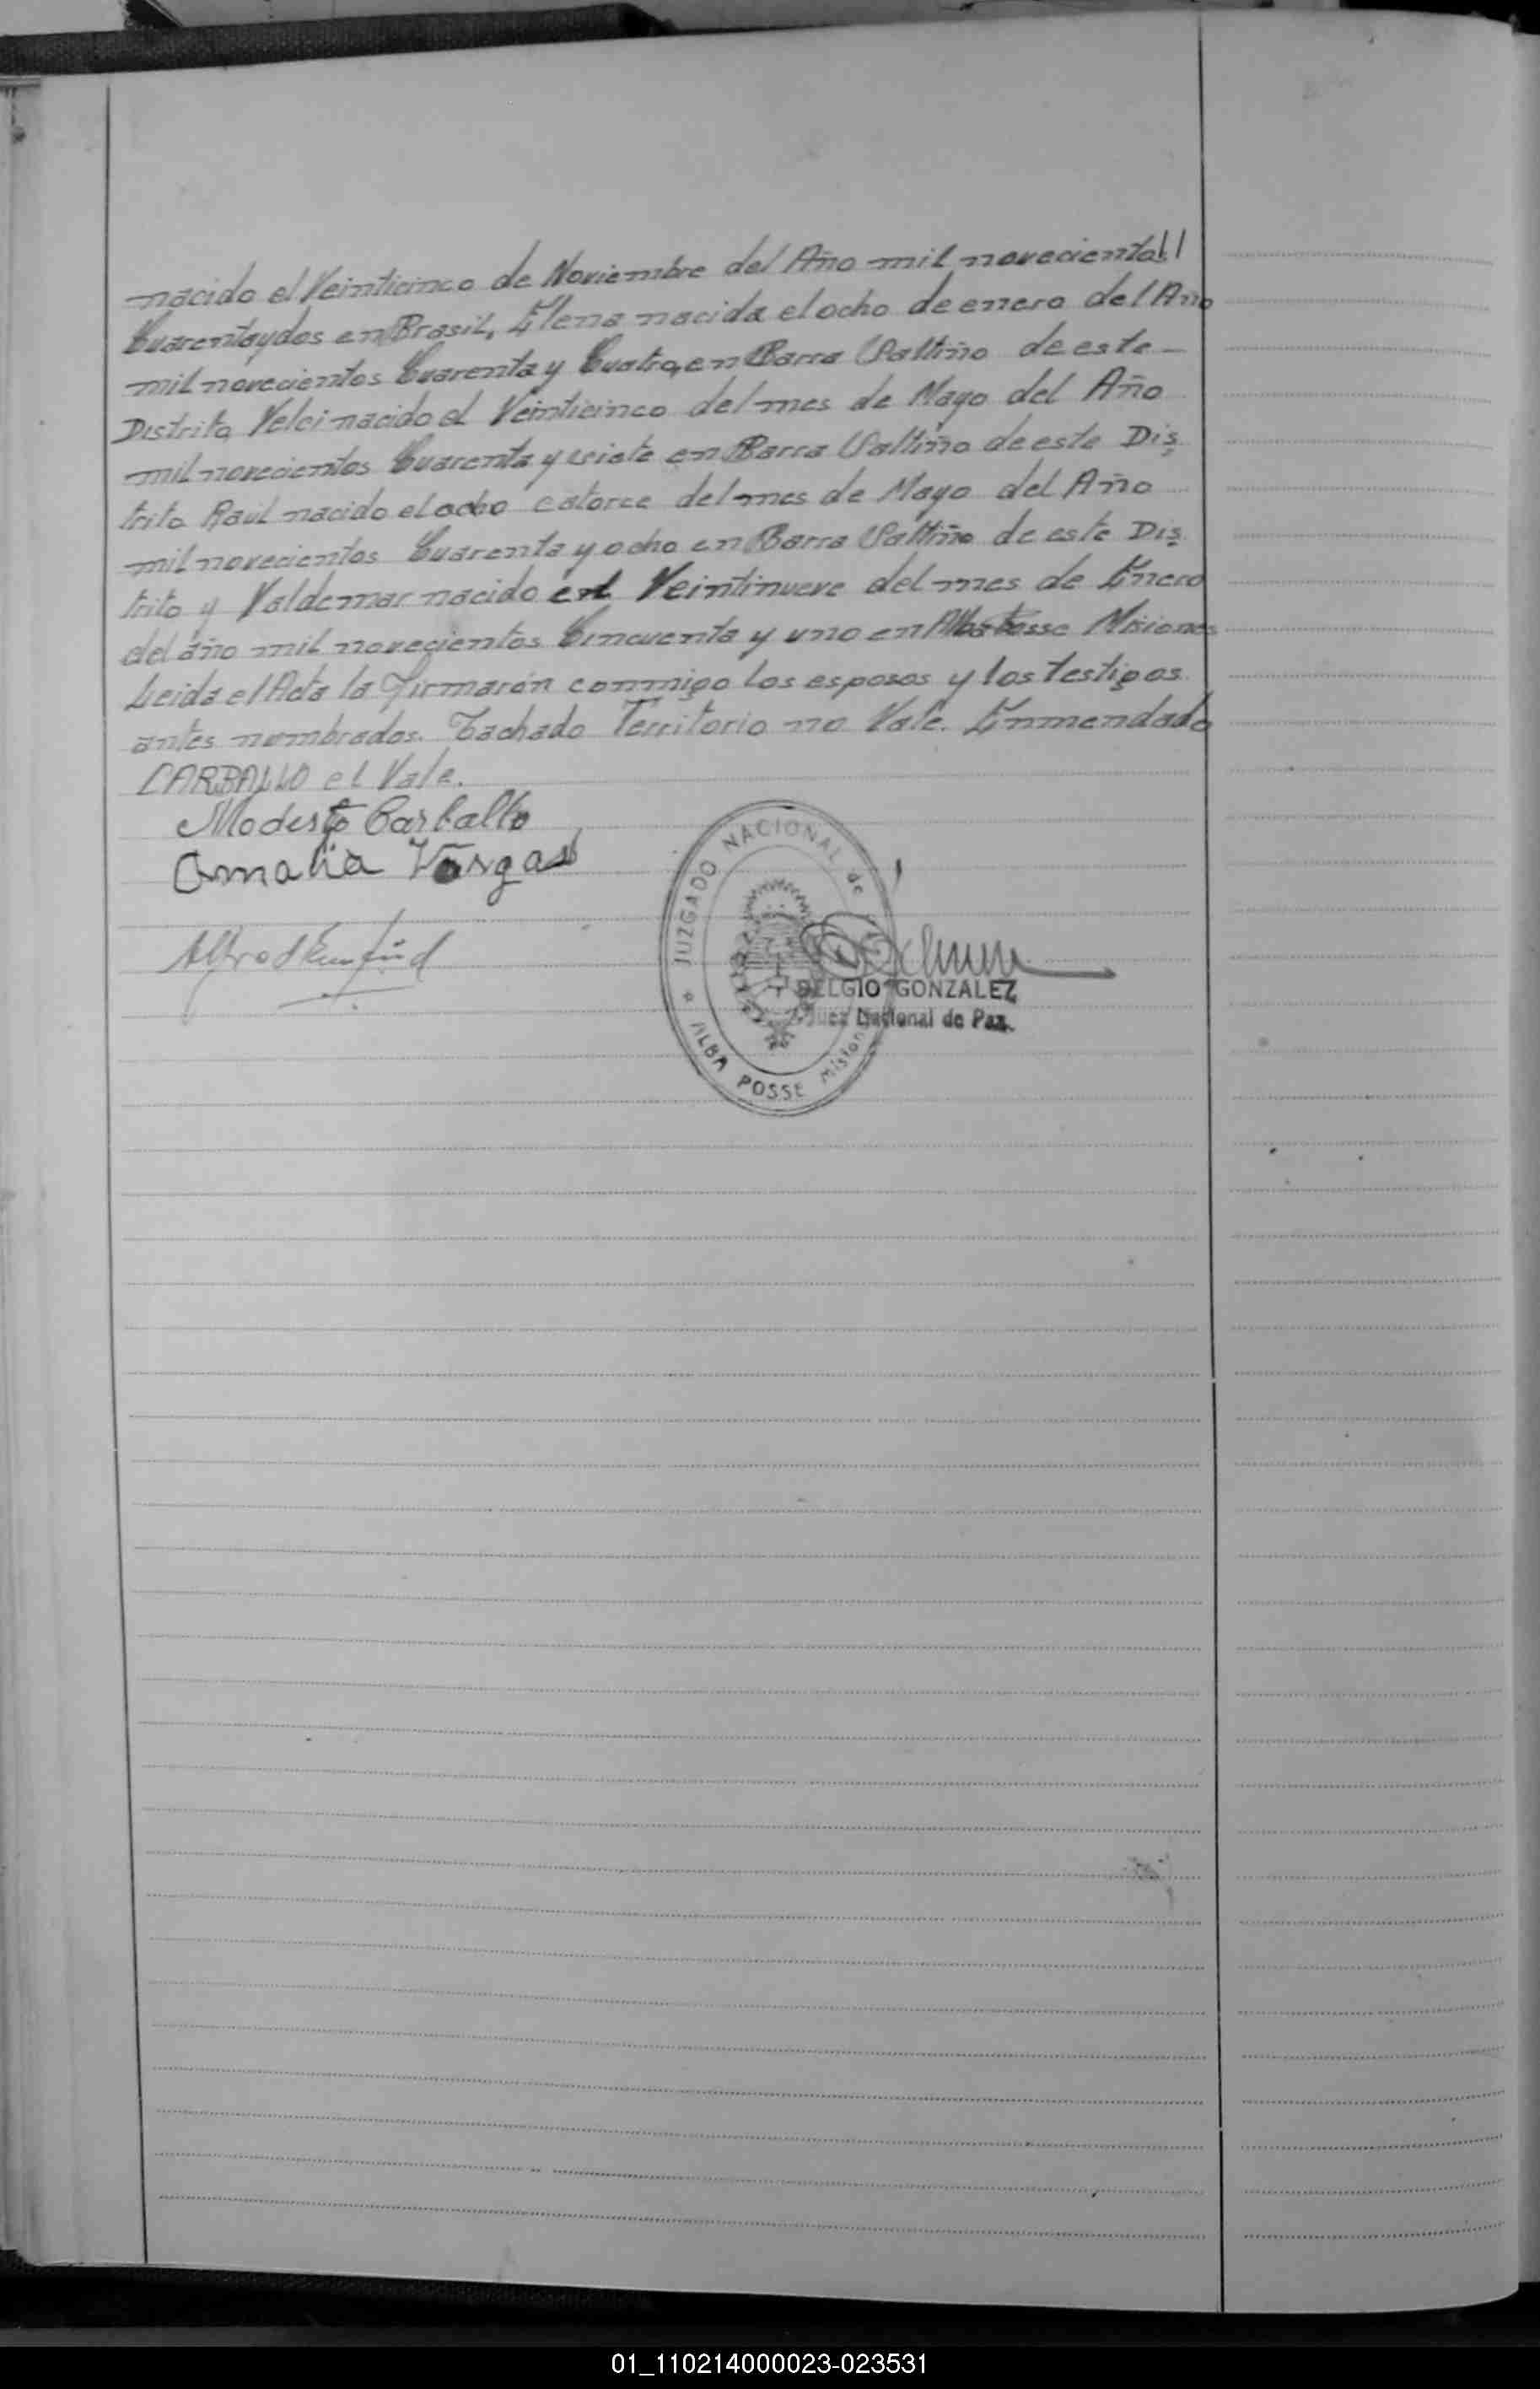 nacido el Veinticinco de Noviembre del Año mil novecientos
Cuarentaydos en Brasil, Elena nacida el ocho de enero del Año
mil novecientos Cuarenta y Cuatro, en Barra de este
Distrito, Velci nacido el Veinticinco del mes de Mayo del Año
mil novecientos Cuarenta y siete en Barra de este Dis
trito Raul nacido el ocho catorce del mes de Mayo del Año
mil novecientos Cuarenta y ocho en Barra de este Dis
trito y Valdemar nacido el Veintinueve del mes de Enero
del año mil novecientos Cincuenta y uno en Alba Posse Misiones
Leida el Acta la Firmarón conmigo los esposos y los testigos
antes nombrados. Tachado Territorio no Vale. Enmendado
CARBALLO el Vale.
Modesto Carballo
Amalia Vargas
JUZGADO NACIONAL de
BELGIO GONZALEZ
Juez Nacional de Paz
ALBA POSSE Mision
01_110214000023-023531